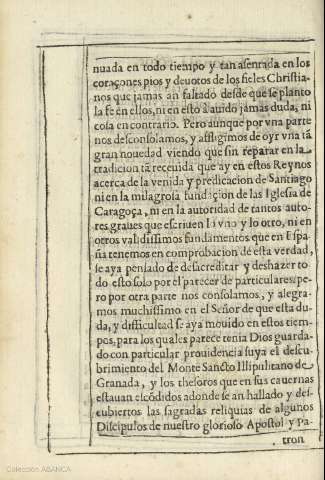 nuada en todo tiempo y tan asentada en los
coraçones pios y deuotos de los fieles Christia-
nos que jamas an faltado desde que se planto
la fe en ellos, ni en esto à auido jamas duda, ni
cosa en contrario. Pero aunque por vna parte
nos desconsolamos, y affligimos de oyr vna tã
gran nouedad viendo que sin reparar en la
tradicion tã receuida que ay en estos Reynos
acerca de la venida y predicacion de Santiago
ni en la milagrosa fundacion de las Iglesia de
Caragoça, ni en la autoridad de tantos auto-
res graues que escriuen lo vno y lo otro, ni en
otros validissimos fundamentos que en Espa
ña tenemos en comprobacion de esta verdad,
se aya pensado de desacreditar y deshazer to
do esto solo por el parecer de particulares, pe-
ro por otra parte nos consolamos, y alegra-
mos muchissimo en el Señor de que esta du-
da, y difficultad se aya mouido en estos tiem-
pos, para los quales parece tenia Dios guarda-
do con particular prouidencia suya el descu-
brimiento del Monte Sancto Illipulitano de
Granada, y los thesoros que en sus cauernas
estauan escõdidos adonde se an hallado y des-
cubiertos las sagradas reliquias de algunos
Discipulos de nuestro glorioso Apostol y Pa-
tron
Colección ABANCA